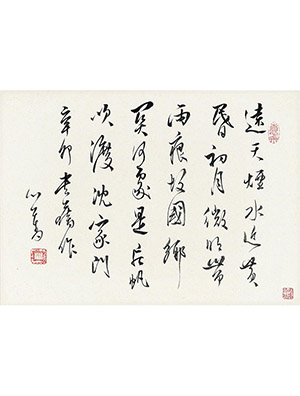 遠天煙水近黃
昏初月微明帶
雨痕故國鄉
關何處是帆
吹渡沈家門
辛卯書舊作
心畬